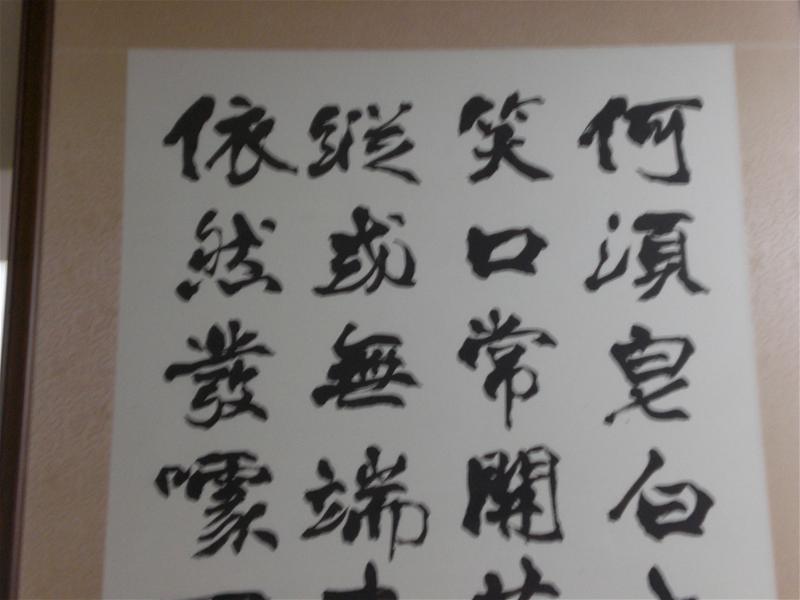 何須皂白
笑口常開
縱或無端
依然發噱